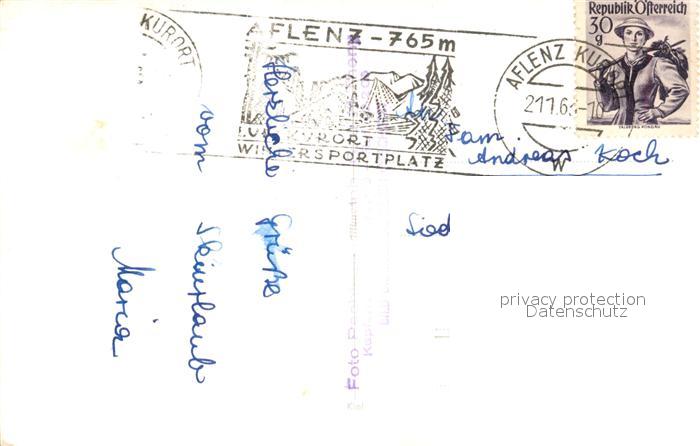 KURORT
AFLENZ - 765m
LUFTKURORT
WINTERSPORTPLATZ
AFLENZ KUR
Republik Österreich
30
g
SALZBURG PONGAU
Herzliche Grüße
vom Skiurlaub
Maria
An
Fam.
Andreas Koch
Foto
privacy protection
Datenschutz